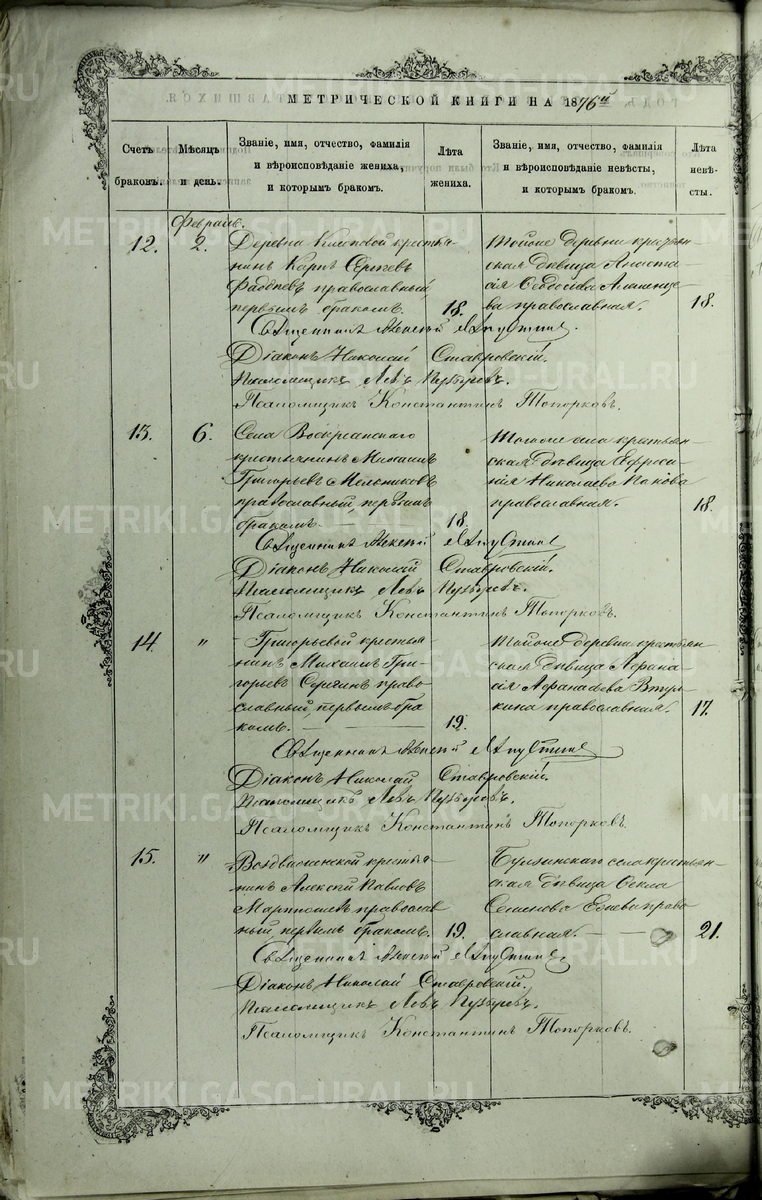 МЕТРИЧЕСКОЙ КНИГИ НА 1876й
Счетъ браковъ.
Мѣсяцъ и день.
Званіе, имя, отчество, фамилія и вѣроисповѣданіе жениха, и которымъ бракомъ.
Лѣта жениха.
Званіе, имя, отчество, фамилія и вѣроисповѣданіе невѣсты, и которымъ бракомъ.
Лѣта невѣсты.
Февраль.
12. 2. Деревни крестья-
нинъ Карпъ Сергѣевъ
православный,
первымъ бракомъ. 18.
Тойже деревни крестьян-
ская дѣвица Анаста-
сія
ва православная. 18.
Священникъ Алексій
Діаконъ Николай Ставровскій.
Псаломщикъ Левъ Пузыревъ.
Псаломщикъ Константинъ Топорковъ.
13. 6. Села Воскресенскаго
крестьянинъ Михаилъ
Григорьевъ Мельниковъ
православный первымъ
бракомъ 18.
Тогоже села крестьян-
ская дѣвица Ефроси-
нія Николаева Пахова
православная. 18.
Священникъ Алексій
Діаконъ Николай Ставровскій.
Псаломщикъ Левъ Пузыревъ.
Псаломщикъ Константинъ Топорковъ.
14. " Григорьевой крестья-
нинъ Михаилъ Гри-
горьевъ Серегинъ право-
славный, первымъ бра
комъ. 19.
Тойже деревни крестьян
ская дѣвица Афана-
сія Афанасьева Втрю-
кина православная. 17.
Священникъ Алексій
Діаконъ Николай Ставровскій.
Псаломщикъ Левъ Пузыревъ.
Псаломщикъ Константинъ Топорковъ.
15. " Воздвиженской крестья-
нинъ Алексій Павловъ
православ
ный первымъ бракомъ. 19.
Булзинскаго села крестьян-
ская дѣвица Ѳекла
Семенова право
славная. 21.
Священникъ Алексій
Діаконъ Николай Ставровскій.
Псаломщикъ Левъ Пузыревъ.
Псаломщикъ Константинъ Топорковъ.
METRIKI.GASO-URAL.RU